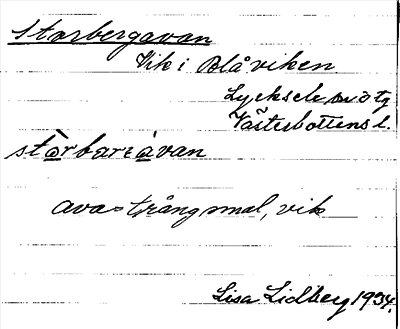 Starbergavan
Vik i Blåviken
Lycksele sn ö tg
Västerbottens l.
stàrbarràvan
ava = trång smal, vik
Lisa Lidberg 1934.